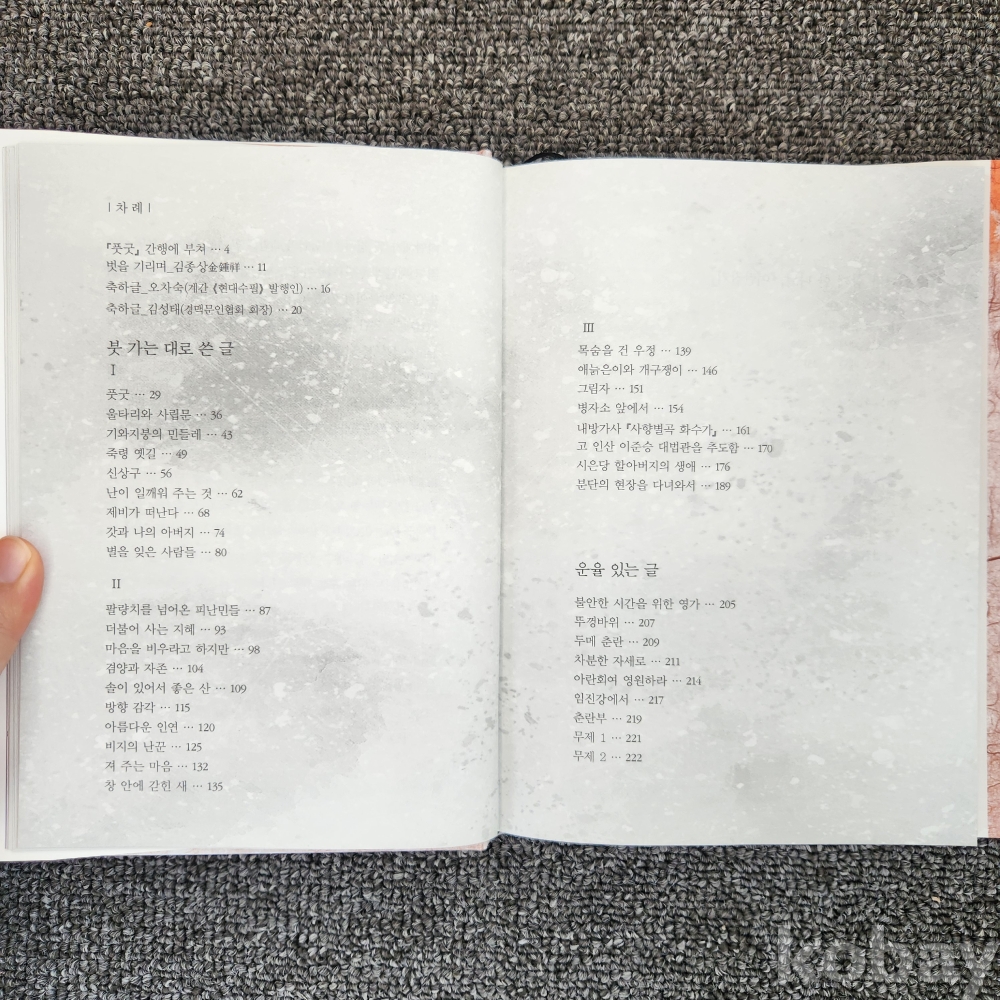 | 차 례 |
『풋굿』 간행에 부쳐 … 4
벗을 기리며_김종상金鍾祥 … 11
축하글_오차숙(계간 《현대수필》 발행인) … 16
축하글_김성태(경맥문인협회 회장) … 20
붓 가는 대로 쓴 글
Ⅰ
풋굿 … 29
울타리와 사립문 … 36
기와지붕의 민들레 … 43
죽령 옛길 … 49
신상구 … 56
난이 일깨워 주는 것 … 62
제비가 떠난다 … 68
갓과 나의 아버지 … 74
별을 잊은 사람들 … 80
Ⅱ
팔량치를 넘어온 피난민들 … 87
더불어 사는 지혜 … 93
마음을 비우라고 하지만 … 98
겸양과 자존 … 104
솔이 있어서 좋은 산 … 109
방향 감각 … 115
아름다운 인연 … 120
비지의 난꾼 … 125
져 주는 마음 … 132
창 안에 갇힌 새 … 135
Ⅲ
목숨을 건 우정 … 139
애늙은이와 개구쟁이 … 146
그림자 … 151
병자소 앞에서 … 154
내방가사 『사향별곡 화수가』 … 161
고 인산 이준승 대법관을 추도함 … 170
시은당 할아버지의 생애 … 176
분단의 현장을 다녀와서 … 189
운율 있는 글
불안한 시간을 위한 영가 … 205
뚜껑바위 … 207
두메 춘란 … 209
차분한 자세로 … 211
아란회여 영원하라 … 214
임진강에서 … 217
춘란부 … 219
무제 1 … 221
무제 2 … 222
kobay